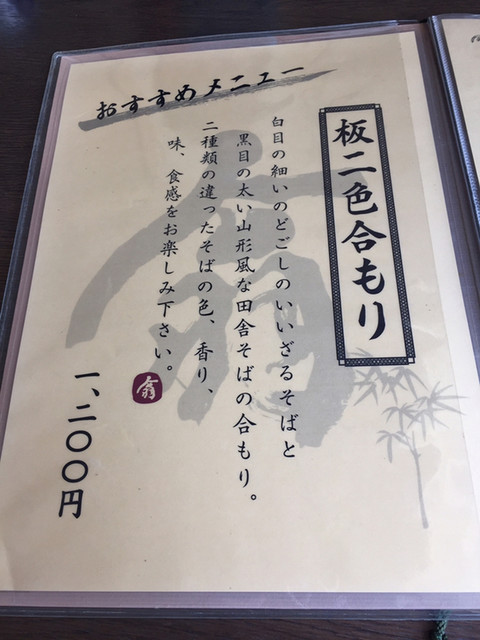 おすすめメニュー
板二色合もり
白目の細いのどごしのいいざるそばと
黒目の太い山形風な田舎そばの合もり。
二種類の違ったそばの色、香り、
味、食感をお楽しみ下さい。
翁
一、二〇〇円
翁